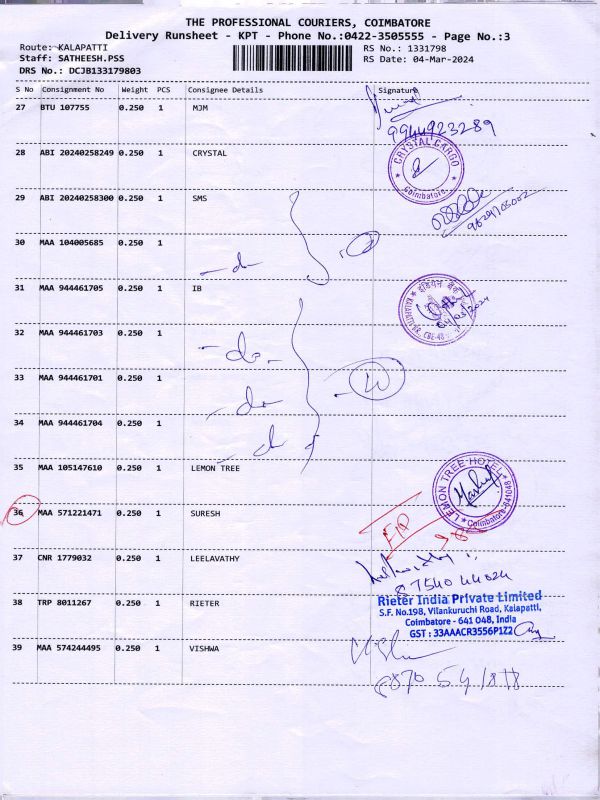 THE PROFESSIONAL COURIERS, COIMBATORE
Delivery Runsheet - KPT - Phone No.:0422-3505555 - Page No.:3
Route: KALAPATTI RS No.: 1331798
Staff: SATHEESH.PSS RS Date: 04-Mar-2024
DRS No.: DCJB133179803
S No Consignment No Weight PCS Consignee Details Signature
27 BTU 107755 0.250 1 MJM
9944923289
28 ABI 20240258249 0.250 1 CRYSTAL
CRYSTAL CARGO
Coimbatore.
29 ABI 20240258300 0.250 1 SMS
30 MAA 104005685 0.250 1
-do-
31 MAA 944461705 0.250 1 IB
04/03/2024
32 MAA 944461703 0.250 1
-do-
33 MAA 944461701 0.250 1
-do-
34 MAA 944461704 0.250 1
-do-
35 MAA 105147610 0.250 1 LEMON TREE
LEMON TREE HOTEL
Coimbatore-641048
36 MAA 571221471 0.250 1 SURESH
37 CNR 1779032 0.250 1 LEELAVATHY
87540 44024
38 TRP 8011267 0.250 1 RIETER
Rieter India Private Limited
S.F. No.198, Vilankuruchi Road, Kalapatti,
Coimbatore - 641 048, India
GST : 33AAACR3556P1Z2
39 MAA 574244495 0.250 1 VISHWA